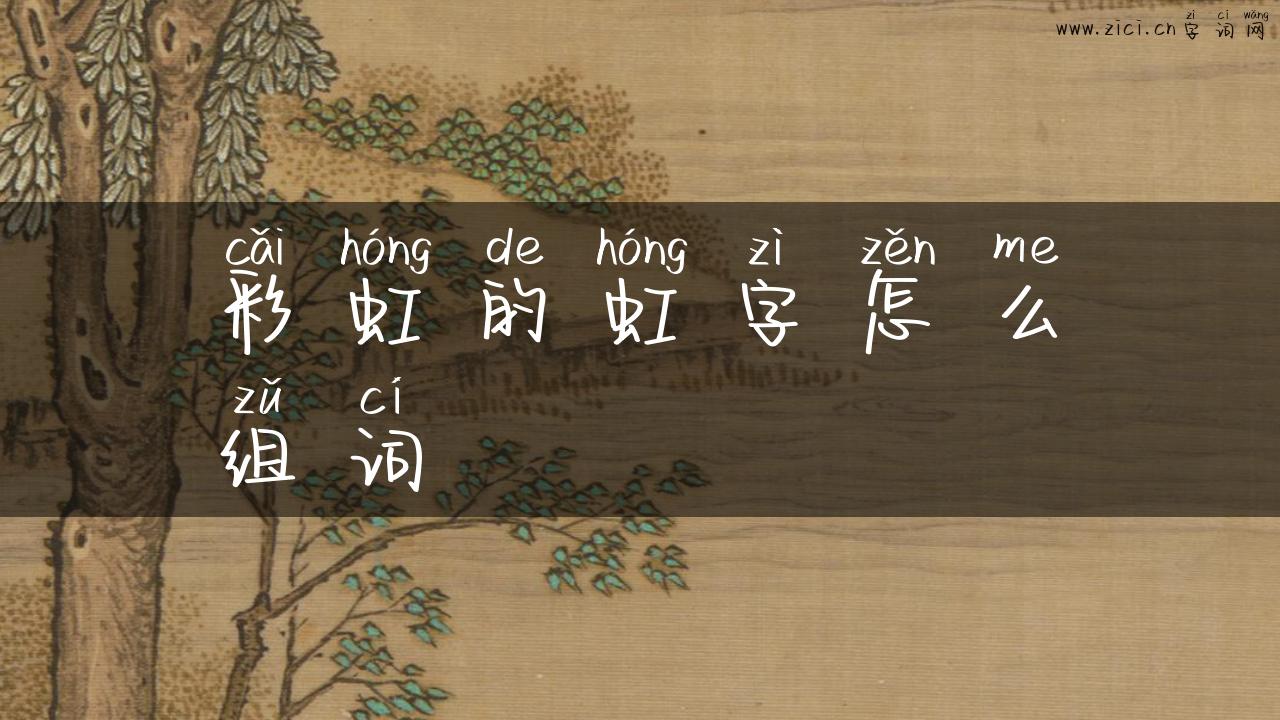 zì cí wǎng
www.zici.cn 字词网
cǎi hóng de hóng zì zěn me
彩虹的虹字怎么
zǔ cí
组词